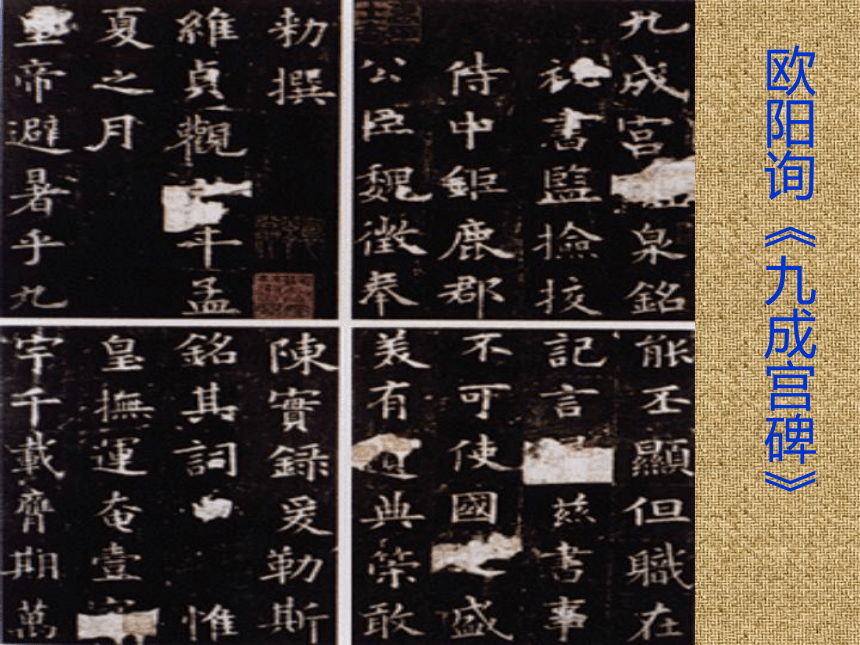 欧阳询《九成宫碑》
九成宮泉銘
祕書監撿挍
侍中鉅鹿郡
公臣魏徵奉
勑撰
維貞觀年孟
夏之月
皇帝避暑乎九
能丕顯但職在
記言茲書事
不可使國盛
美有典策敢
陳實錄爰勒斯
銘其詞曰惟
皇撫運奄壹
宇千載膺期萬